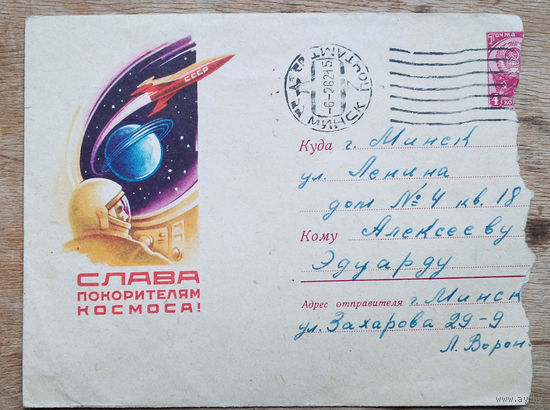 СССР
СЛАВА
ПОКОРИТЕЛЯМ
КОСМОСА!
ПОЧТАМТ
-6-26215
МИНСК
ПОЧТА
4 КО
Куда г. Минск
ул. Ленина
дом № 4 кв. 18
Кому Алексееву
Эдуарду
Адрес отправителя г. Минск
ул. Захарова 29-9
Л. Ворон